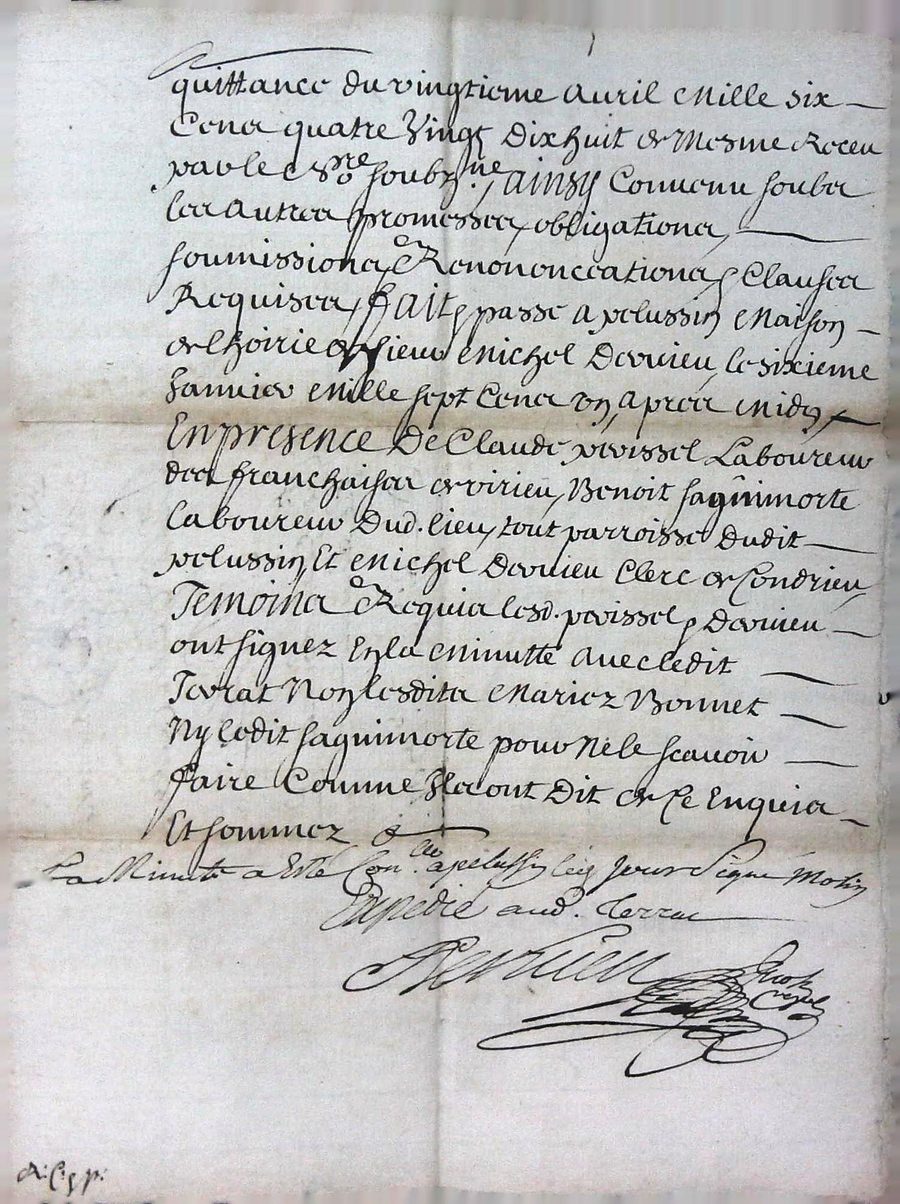 quittance du vingtieme auril mille six
Cens quatre Vingt Dixhuit & Mesme Receu
par le No.re soubz.ne, ainsy Conuenu soubs
les autres promesses, obligations,
soumissions, & Renononceations, & Clauses
Requises, fait & passé a pelussin maison
de lhoirie de sieur Michel Deruieu, le sixieme
Januier mille sept Cens un, apres midy,
En presence De Claude peirissel Laboureur
des franchises de virieu, Benoit saguimorte
laboureur Dud. lieu, tout parroisse Dudit
pelussin Et Michel Deruieu Clerc de Condrieu,
Temoins & Requis lesd. peirissel & Deruieu
ont signez En la minutte auec ledit
Terrat Non lesdits Mariez Bonnet
Ny ledit saguimorte pour ne le scauoir
faire Comme Ils ont Dit de Ce Enquis
Et sommez &
La Minute a esté Con.lée a pelussin les jour signé Motin
Expedié aud. Terrat
Deruieu